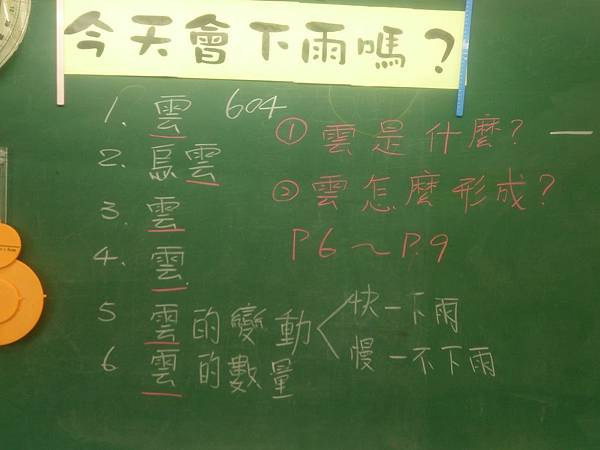 今天會下雨嗎？
1. 雲 604
2. 烏雲
3. 雲
4. 雲
5 雲的變動 快一下雨
慢一不下雨
6 雲的數量
①雲是什麼？一
②雲怎麼形成？
P6～P.9